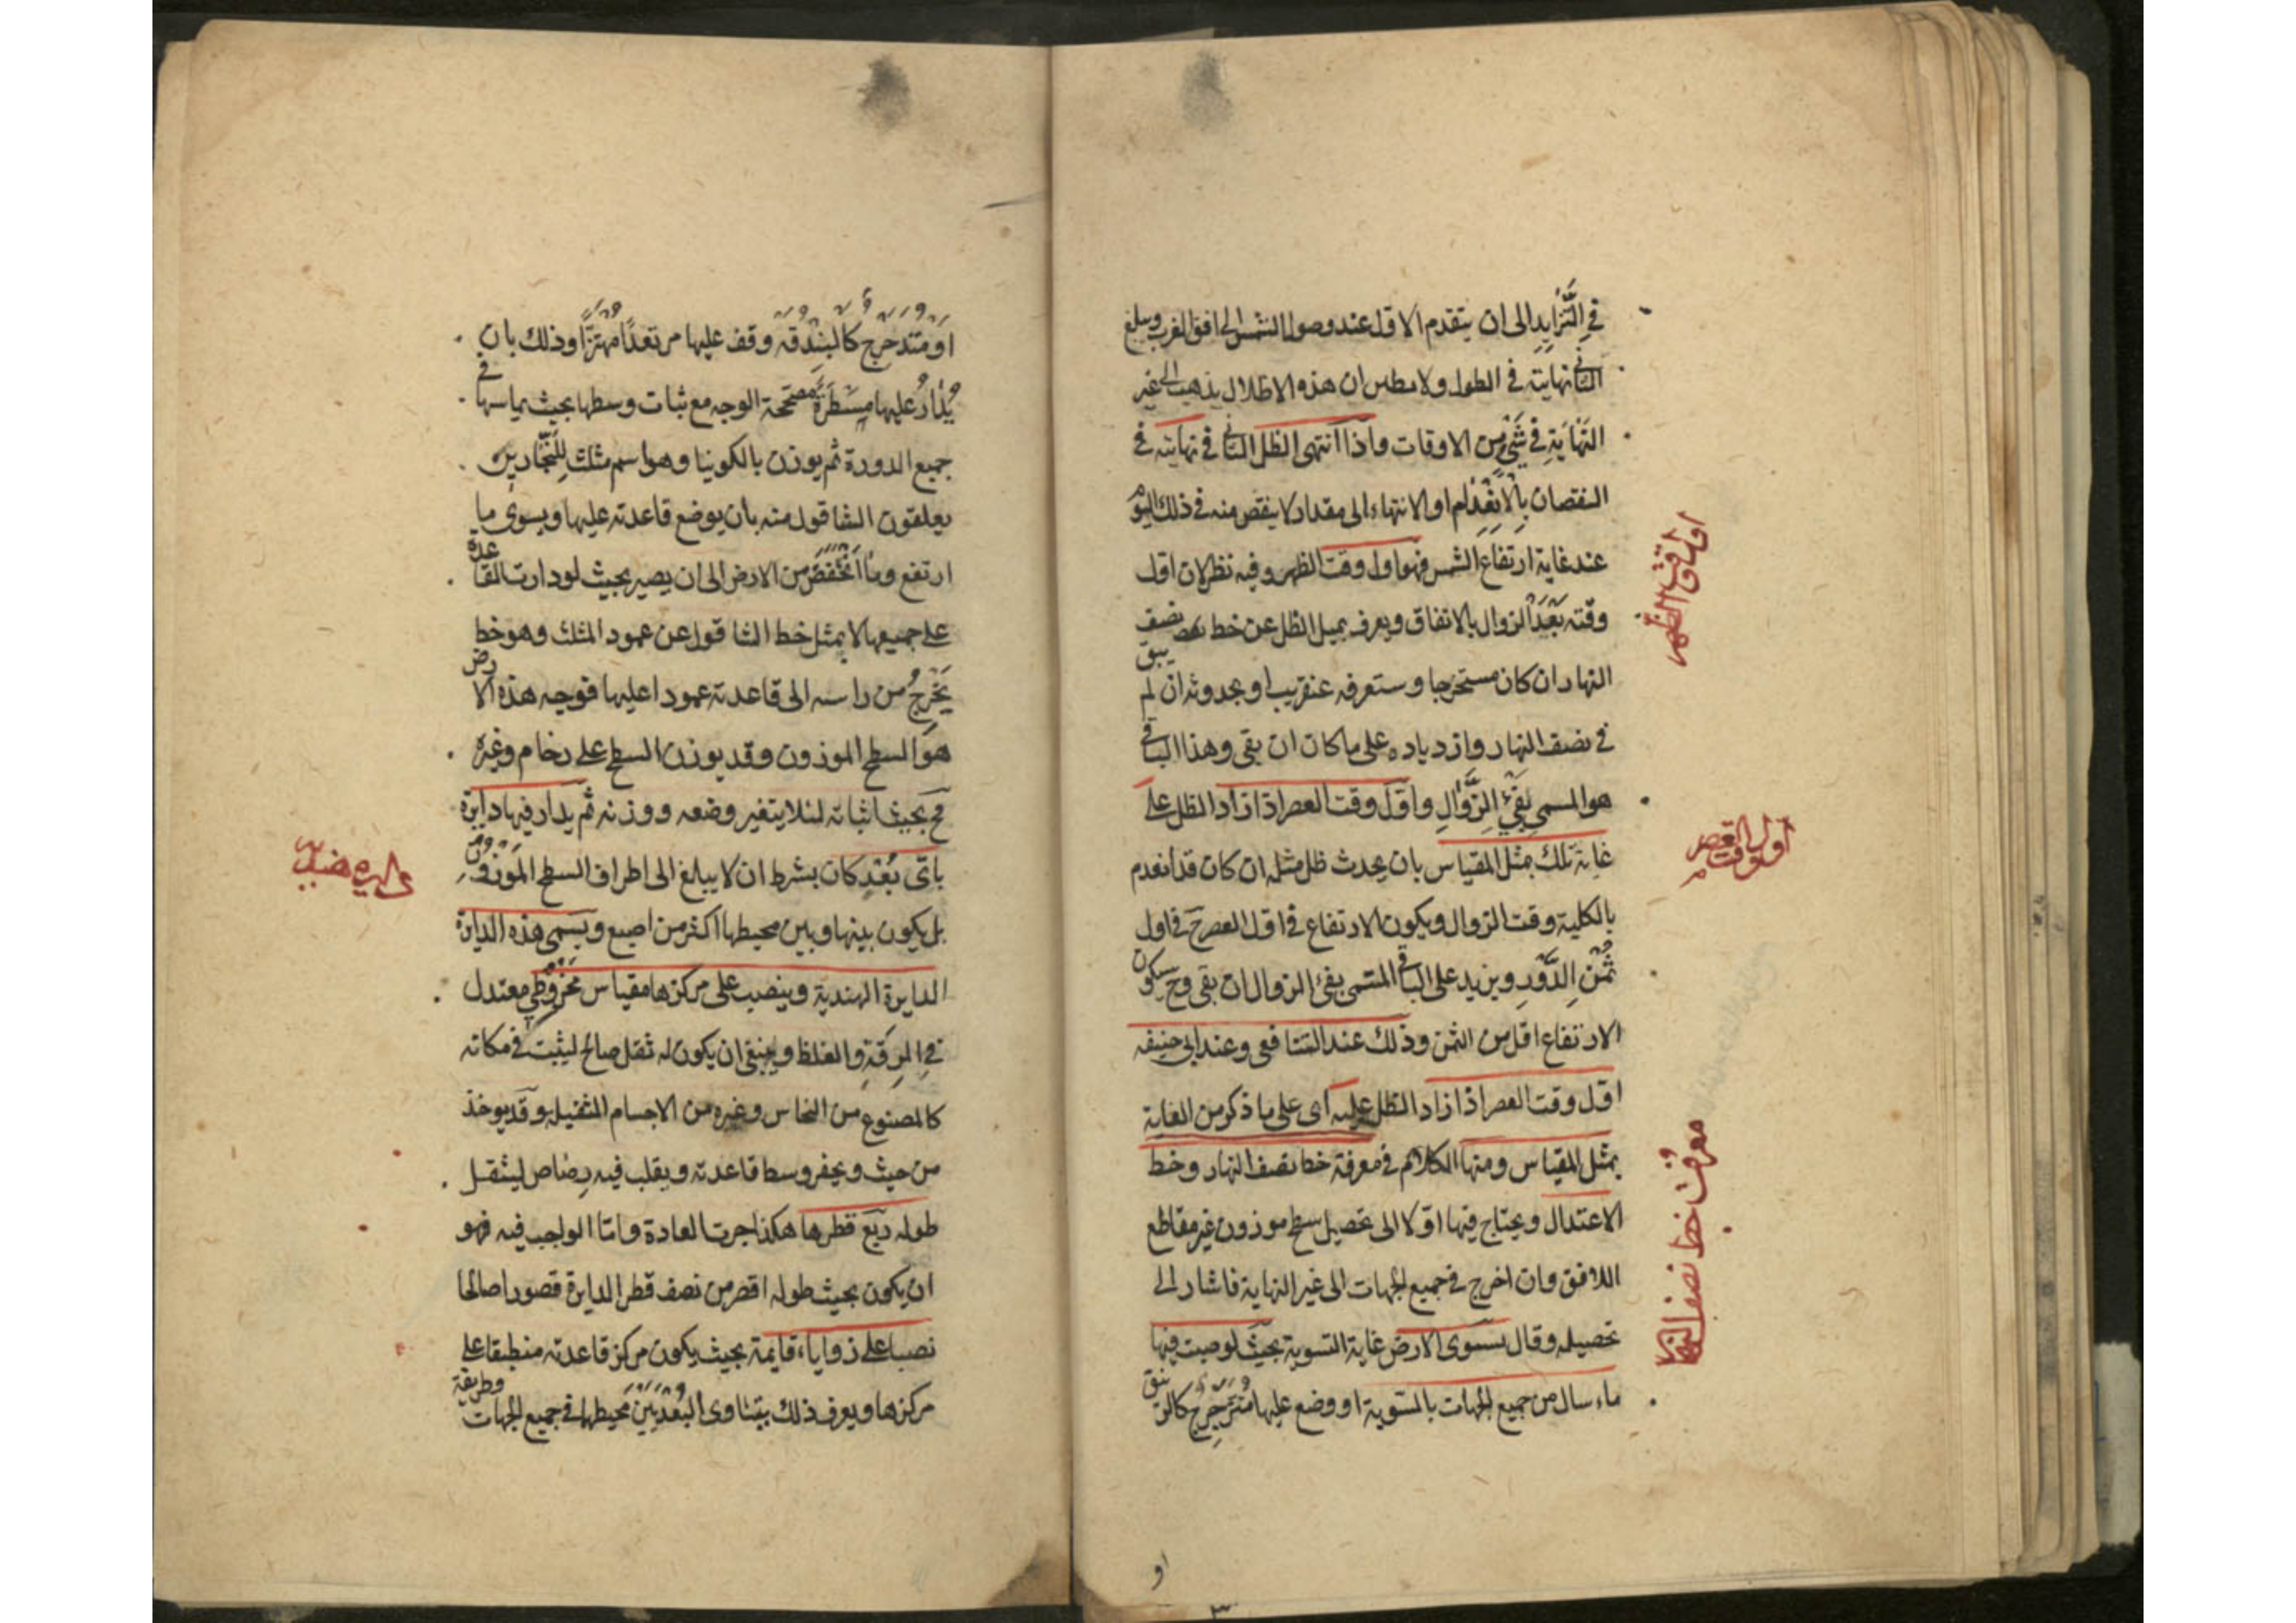 في التَّزَايُدِ الى ان يتقدم الاول عند وصول الشمس الى افق المغرب ويبلغ
الثاني نهايته في الطول ولا يظن ان هذه الاظلال يذهب الى غير
النِّهَايَةِ في شَيْءٍ من الاوقات واذا انتهى الظل الثاني في نهايته في
النقصان بِالاِنْعِدَامِ او الانتهاء الى مقدار لا ينقص منه في ذلك اليوم
عند غاية ارتفاع الشمس فهو اول وقت الظهر وفيه نظر لان اول
وقته بَعْدَ الزوال بالاتفاق ويعرف بميل الظل عن خط نصف
النهار ان كان مستخرجا وستعرفه عنقريب او بحدوثه ان لم يبق
في نصف النهار وازدياده على ما كان ان بقى وهذا الباقي
هو المسمى بِفَيْءِ الزَّوَالِ واول وقت العصر اذا ازداد الظل على
غايته تلك بمثل المقياس بان يحدث ظل مثله ان كان قد انعدم
بالكلية وقت الزوال ويكون الارتفاع في اول العصر ح في اول
ثُمْنِ الدَّوْرِ ويزيد على الباقي المسمى بفئ الزوال ان بقى وح سيكون
الارتفاع اقل من الثمن وذلك عند الشافعي وعند ابي حنيفه
اول وقت العصر اذا زاد الظل عليه اى على ما ذكر من الغاية
بمثلى المقياس ومنها الكلام في معرفة خط نصف النهار وخط
الاعتدال ويحتاج فيها اولا الى تحصيل سطح موزون غير مقاطع
للافق وان اخرج في جميع الجهات الى غير النهاية فاشار الى
تحصيله وقال تسوى الارض غاية التسوية بحيث لو صبت فيها
ماء سال من جميع الجهات بالتسوية او وضع عليها مُتَرَجْرِجٌ كالزيبق
اول وقت الظهر
اول وقت العصر
معرفت خط نصف النهار
او
اَوْ مُتَدَحْرِجٌ كَالْبُنْدُقَةِ وقف عليها مرتعدًا مُهْتَزًّا وذلك بان
يُدَارُ عليها مِسْطَرَةٌ مصححة الوجه مع ثبات وسطها بحيث يماسها في
جميع الدورة ثم يوزن بالكونيا وهو اسم مثلث لِلنَّجَّارِين
يعلقون الشاقول منه بان يوضع قاعدته عليها ويسوى ما
ارتفع وما انْخَفَضَ من الارض الى ان يصير بحيث لو دارت القاعدة
على جميعها لا يمثل خط الشاقول عن عمود المثلث وهو خط
يَخْرُجُ من راسه الى قاعدته عمودا عليها فوجه هذه الارض
هو السطح الموزون وقد يوزن السطح على رخام وغيره
ثم بحيث اثباته لئلا يتغير وضعه ووزنه ثم يدار فيها دايرة
باى بُعْدٍ كان بشرط ان لا يبلغ الى اطراف السطح الموزون
بل يكون بينها وبين محيطها اكثر من اصبع ويسمى هذه الدايرة
الدايرة الهندية وينصب على مركزها مقياس مَخْرُوطِي معتدل
في الرِقَّةِ والغلظ وينبغي ان يكون له ثقل صالح ليثبت في مكانه
كالمصنوع من النحاس وغيره من الاجسام الثقيله وقد يوخذ
من حيث ويحفر وسط قاعدته ويقلب فيه رصاص ليثقل
طوله ربع قطرها هكذا جرت العادة واما الواجب فيه فهو
ان يكون بحيث طوله اقصر من نصف قطر الدايرة قصورا صالحا
نصبا على زوايا قايمة بحيث يكون مركز قاعدته منطبقا على
مركزها ويعرف ذلك بتساوى البُعْدَيْنِ محيطهما في جميع الجهات وطريقة